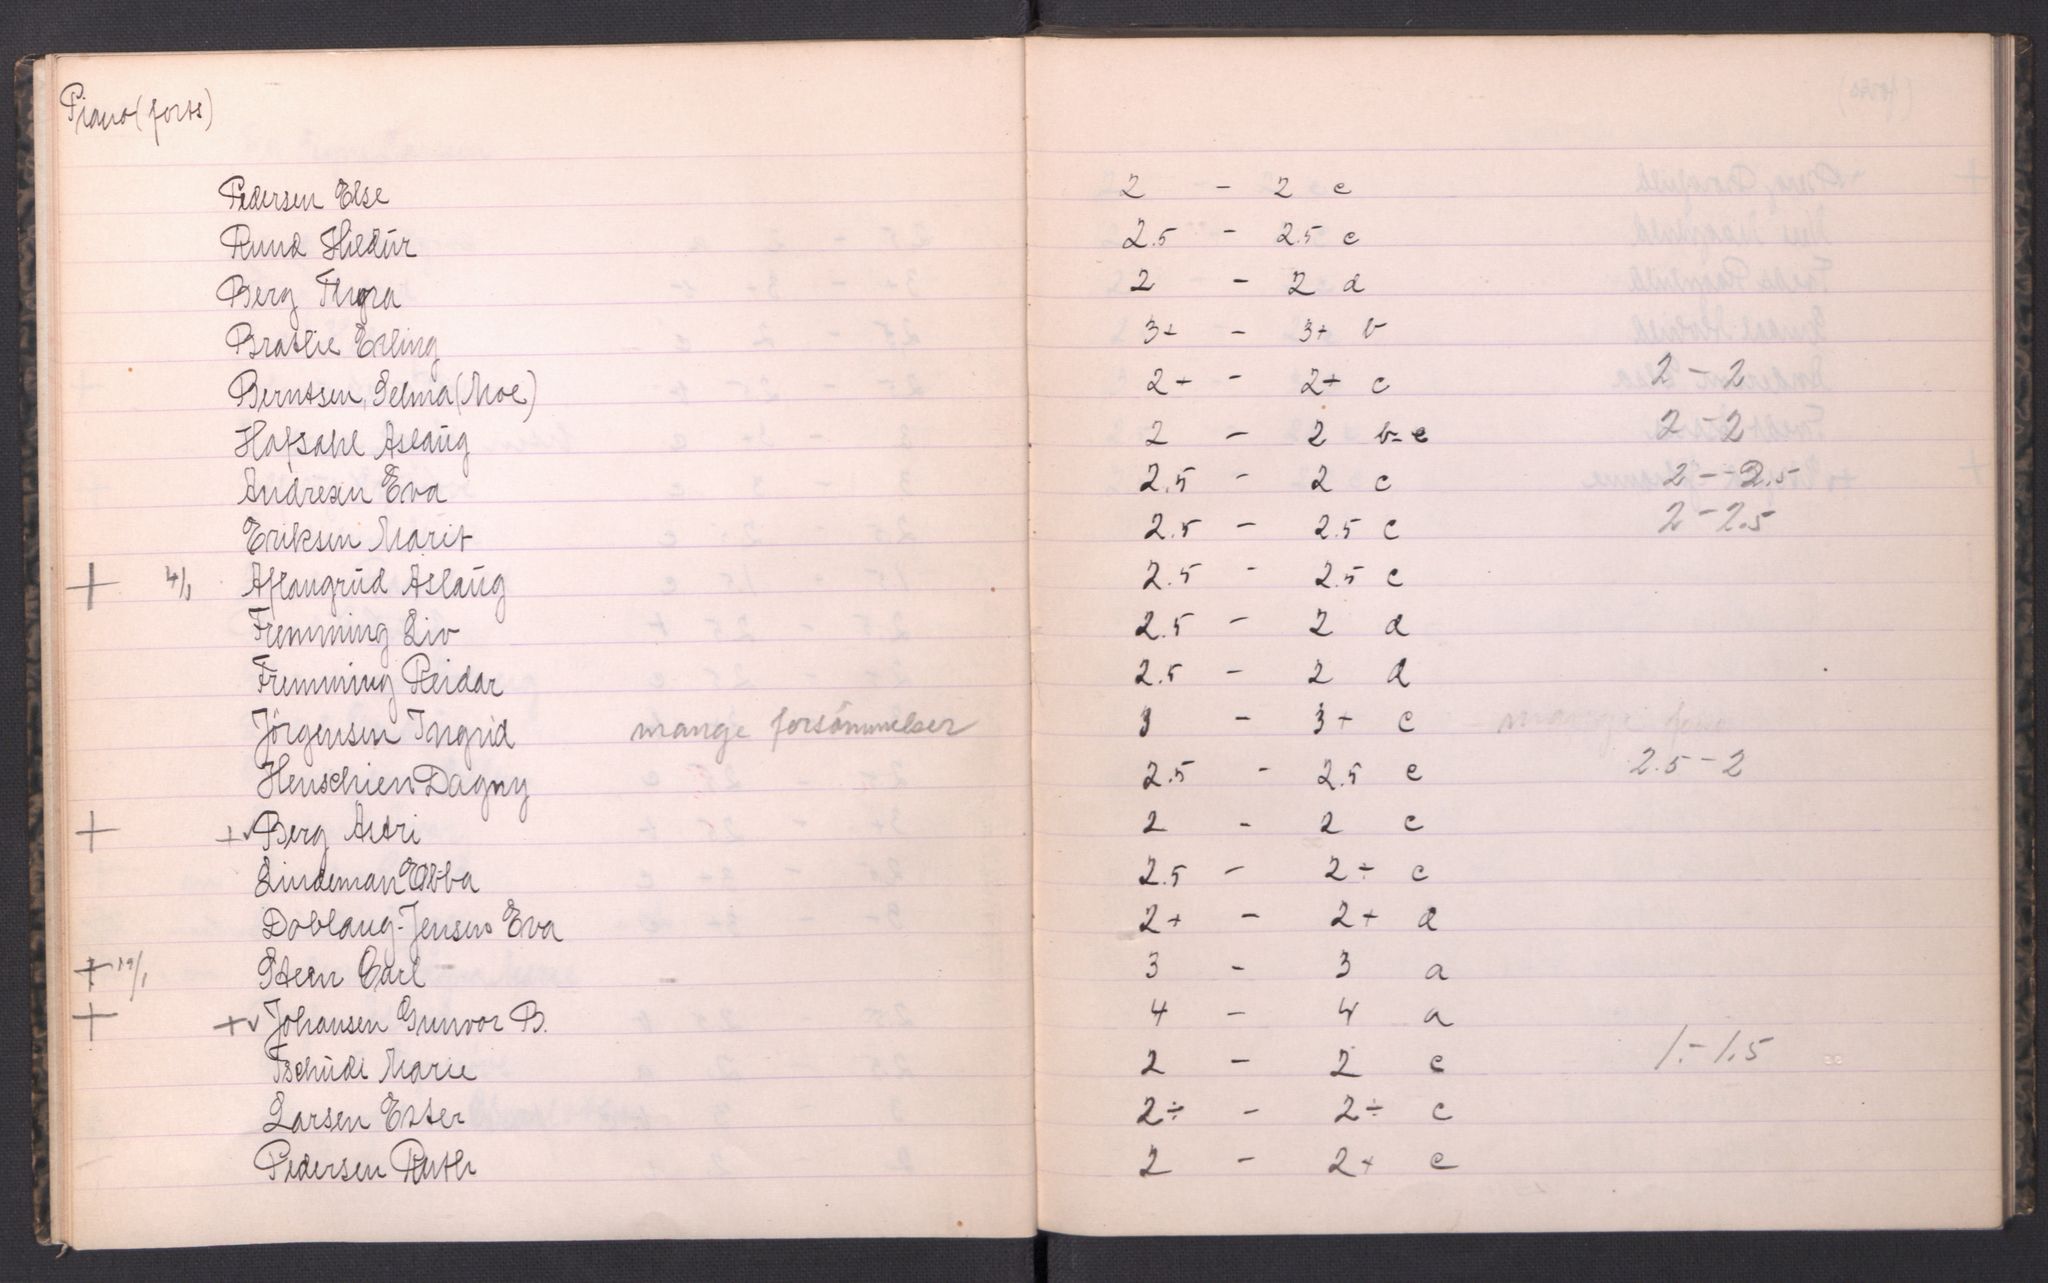 Piano (forts)
Pedersen Else 2 - 2 c
Ruud Hildur 2.5 - 2.5 c
Berg Thyra 2 - 2 d
Bratlie Erling 3+ - 3+ b
Berntsen, Selma (Moe) 2+ - 2+ c 2 - 2
Hofsahl Aslaug 2 - 2 b-c 2 - 2
Andresen Eva 2.5 - 2 c 2 - 2.5
Eriksen Marit 2.5 - 2.5 c 2 - 2.5
+ 4/1 Aflangrud Aslaug 2.5 - 2.5 c
Fremming Liv 2.5 - 2 d
Fremming Reidar 2.5 - 2 d
Jörgensen Ingrid mange forsömmelser 3 - 3+ c
Henschien Dagny 2.5 - 2.5 c 2.5 - 2
+ +✓ Berg Astri 2 - 2 c
Lindeman Ebba 2.5 - 2÷ c
Doblaug-Jensen Eva 2+ - 2+ d
+ 19/1 Steen Carl 3 - 3 a
+ +✓ Johansen Gunvor B. 4 - 4 a
Tschudi Marie 2 - 2 c 1. - 1.5
Larsen Ester 2÷ - 2÷ c
Pedersen Ruth 2 - 2+ c